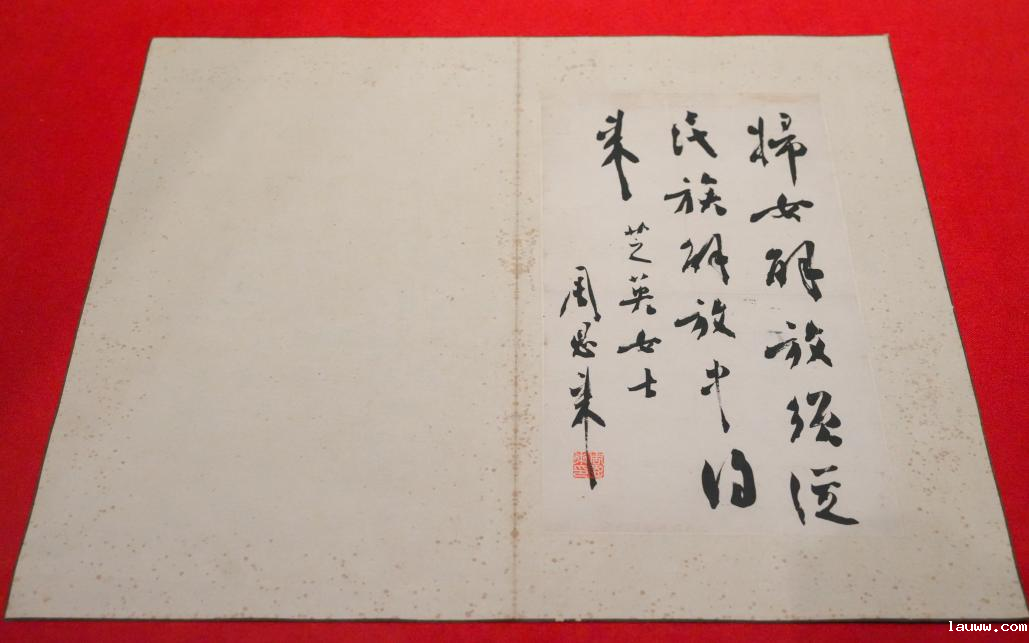 婦女解放須從
民族解放中得
來
芝英女士
周恩來
lauww.com